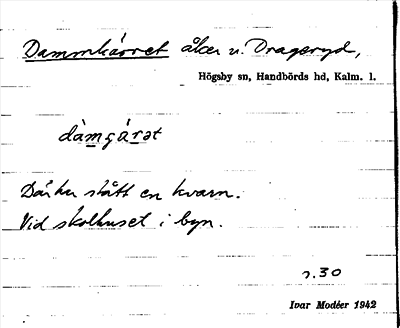 Dammkärret åker u. Drageryd,
Högsby sn, Handbörds hd, Kalm. l.
dàmçárat
Där har stått en kvarn.
Vid skolhuset i byn.
s. 30
Ivar Modéer 1942